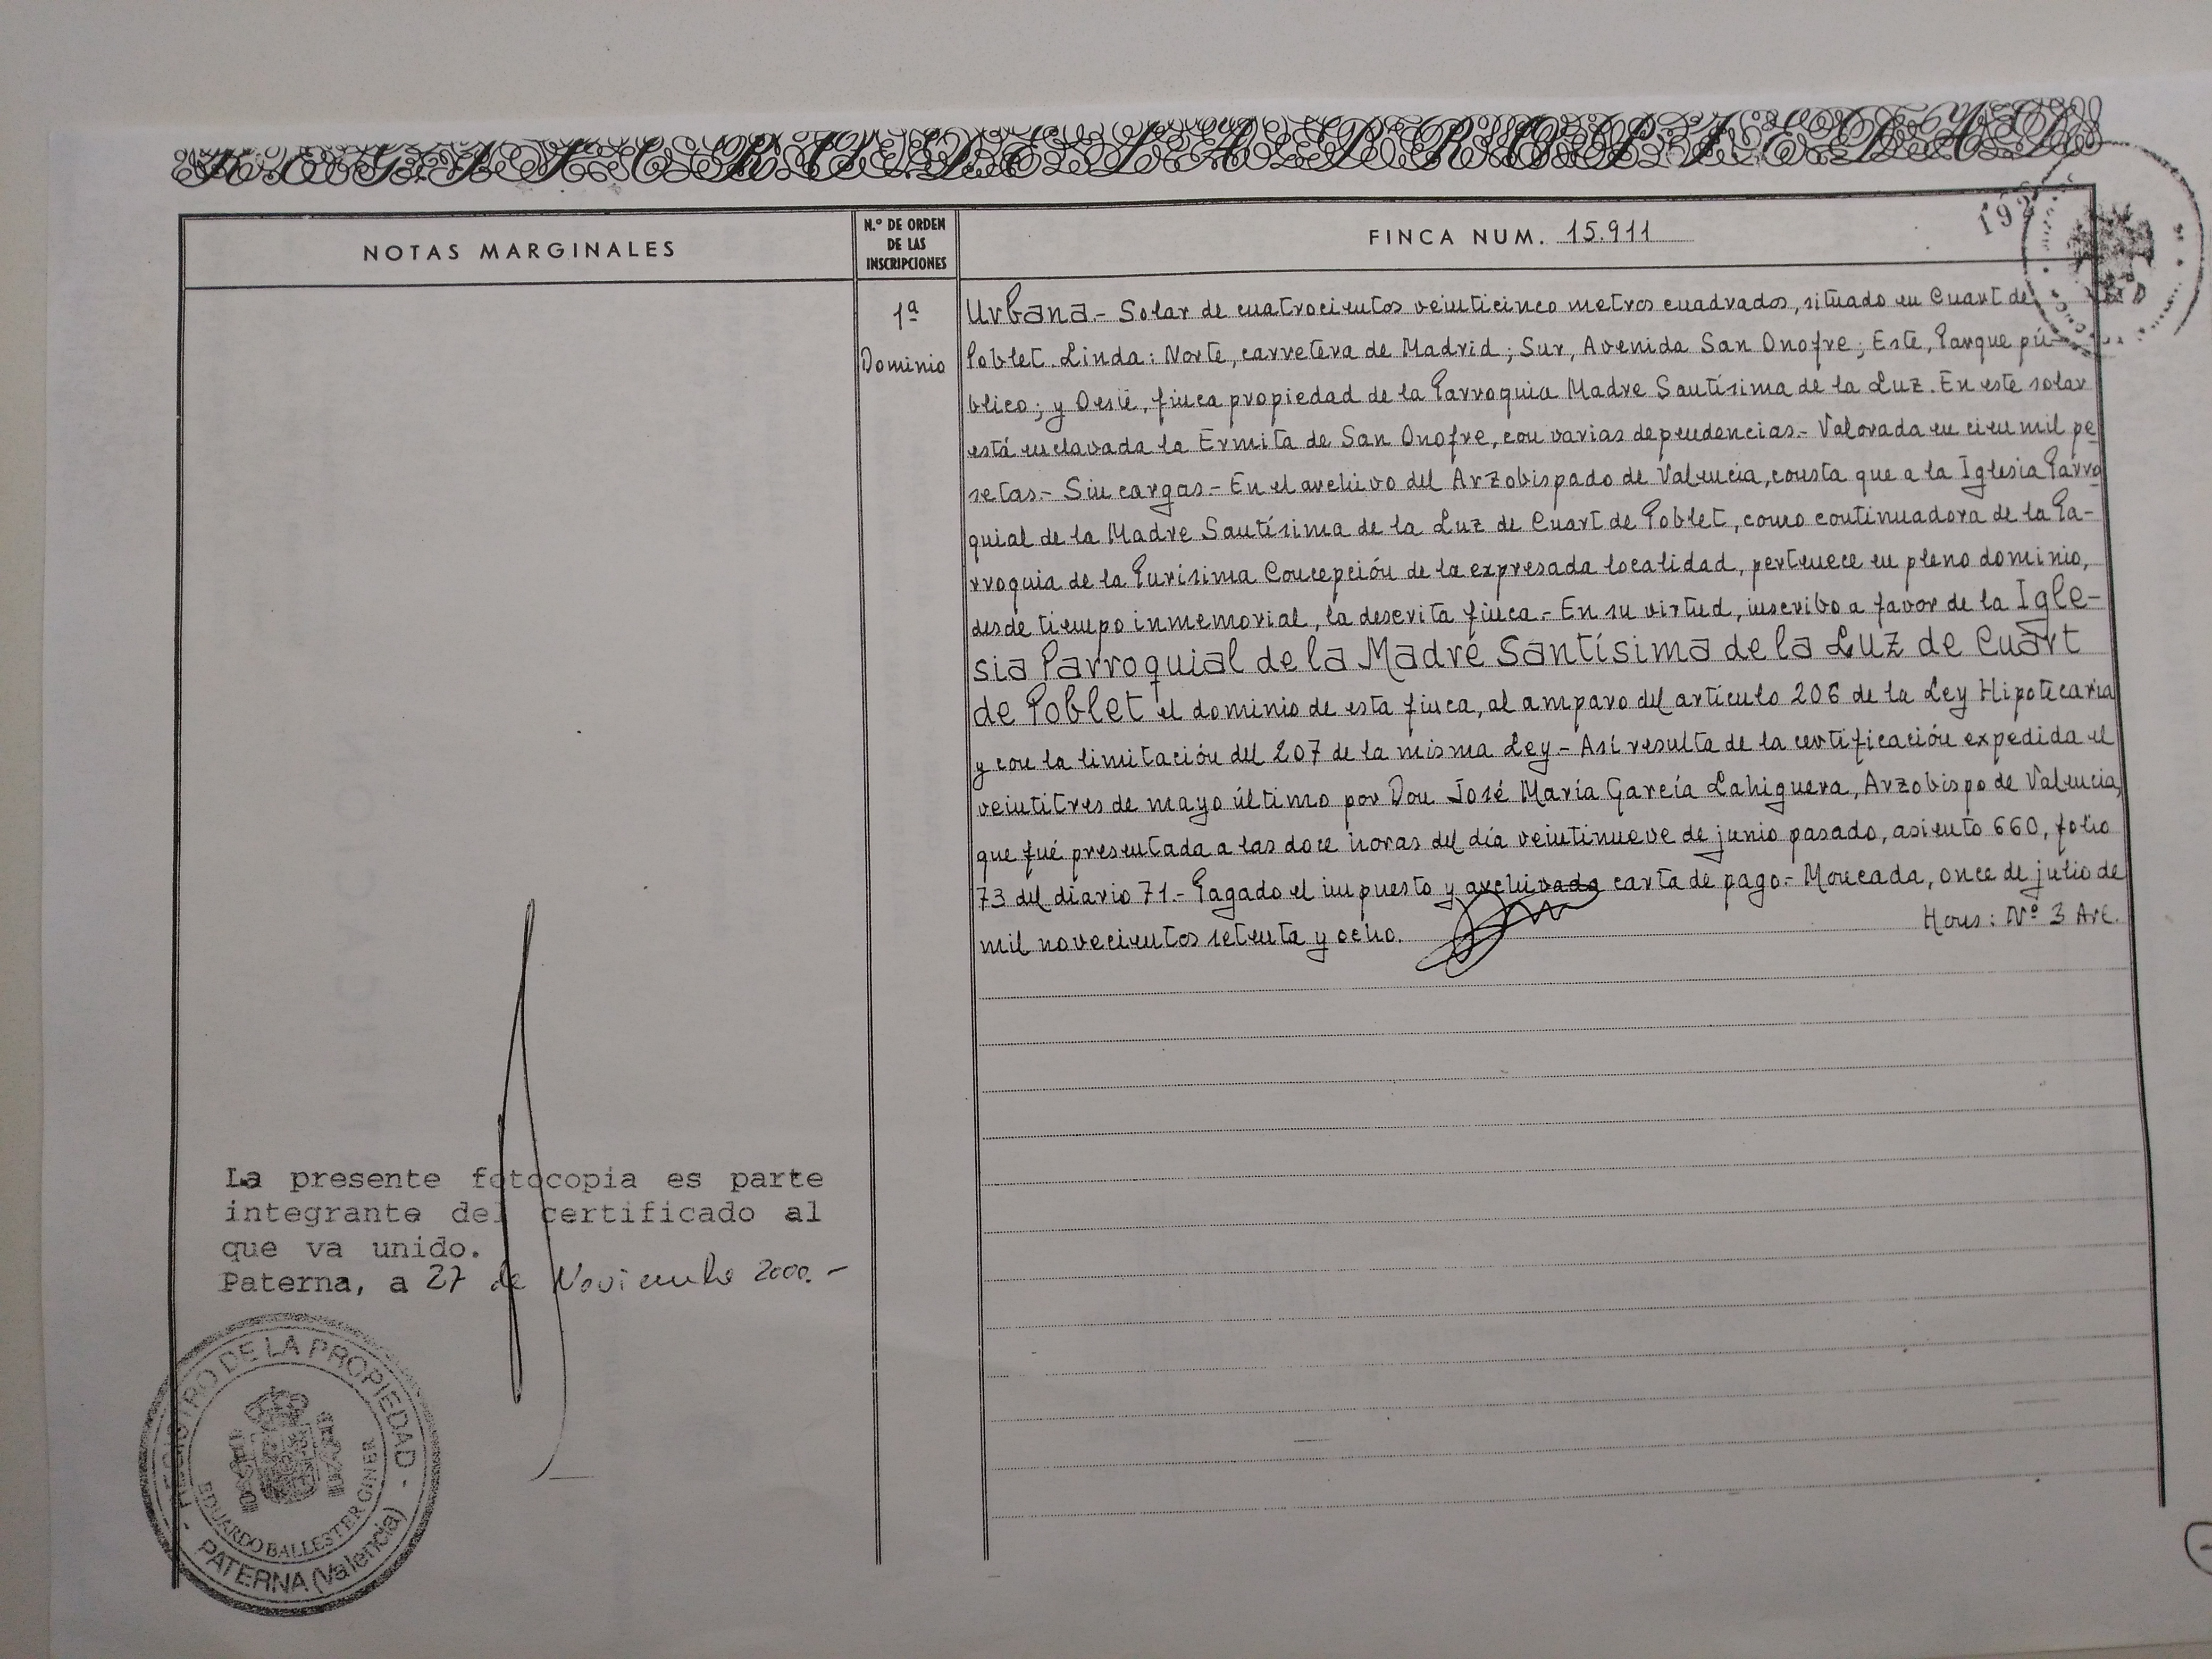 REGISTRO DE LA PROPIEDAD
NOTAS MARGINALES
N.º DE ORDEN
DE LAS
INSCRIPCIONES
FINCA NUM. 15.911
1ª
Dominio
Urbana.- Solar de cuatrocientos veinticinco metros cuadrados, situado en Cuart de
Poblet. Linda: Norte, carretera de Madrid; Sur, Avenida San Onofre; Este, Parque pú-
blico; y Oeste, finca propiedad de la Parroquia Madre Santísima de la Luz. En este solar
está enclavada la Ermita de San Onofre, con varias dependencias.- Valorada en cien mil pe
setas.- Sin cargas.- En el archivo del Arzobispado de Valencia, consta que a la Iglesia Parro
quial de la Madre Santísima de la Luz de Cuart de Poblet, como continuadora de la Pa-
rroquia de la Purísima Concepción de la expresada localidad, pertenece en pleno dominio,
desde tiempo inmemorial, la descrita finca.- En su virtud, inscribo a favor de la Igle-
sia Parroquial de la Madre Santísima de la Luz de Cuart
de Poblet el dominio de esta finca, al amparo del artículo 206 de la Ley Hipotecaria
y con la limitación del 207 de la misma Ley.- Así resulta de la certificación expedida el
veintitres de mayo último por Don José María García Lahiguera, Arzobispo de Valencia,
que fué presentada a las doce horas del día veintinueve de junio pasado, asiento 660, folio
73 del diario 71.- Pagado el impuesto y archivada carta de pago.- Moncada, once de julio de
mil novecientos setenta y ocho.
Hons: Nº 3 Arl.
La presente fotocopia es parte
integrante del certificado al
que va unido.
Paterna, a 27 de Noviembre 2000.-
REGISTRO DE LA PROPIEDAD
EDUARDO BALLESTER GINER
PATERNA (Valencia)